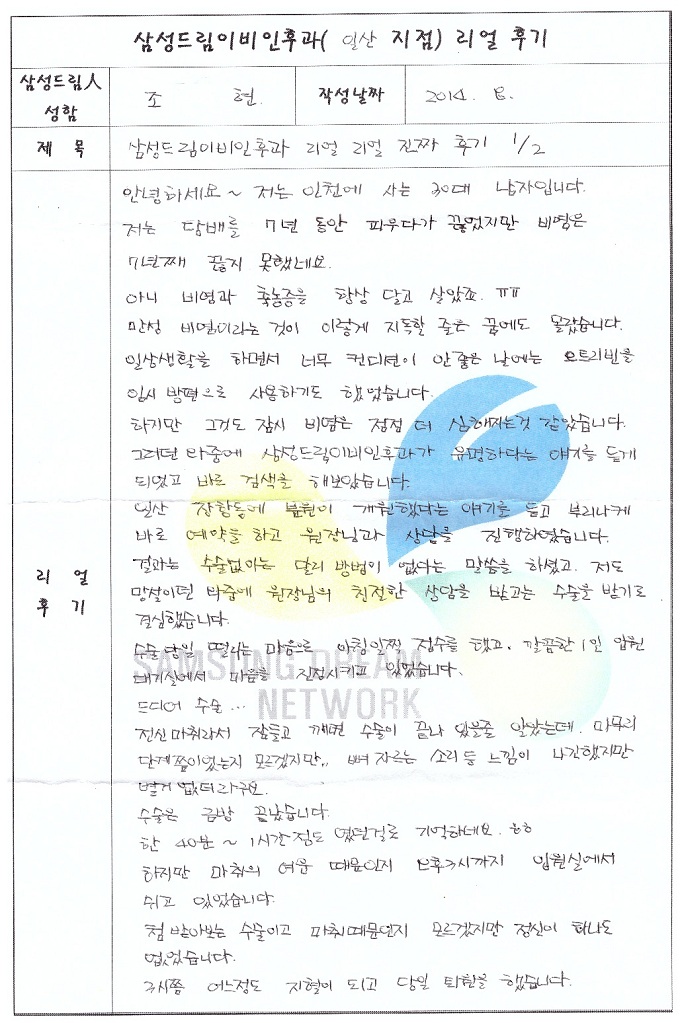 삼성드림이비인후과( 일산 지점) 리얼 후기
삼성드림人 성함
조 현.
작성날짜
2014. 8.
제 목
삼성드림이비인후과 리얼 리얼 진짜 후기 1/2
리 얼 후 기
안녕하세요~ 저는 인천에 사는 30대 남자입니다.
저는 담배를 7년 동안 피우다가 끊었지만 비염은
7년째 끊지 못했네요.
아니 비염과 축농증을 항상 달고 살았죠. ㅠㅠ
만성 비염이라는 것이 이렇게 지독할 줄은 꿈에도 몰랐습니다.
일상생활을 하면서 너무 컨디션이 안좋은 날에는 오트리빈을
임시 방편으로 사용하기도 했었습니다.
하기만 그것도 잠시 비염은 점점 더 심해지는것 같았습니다.
그러던 와중에 삼성드림이비인후과가 유명하다는 얘기를 듣게
되었고 바로 검색을 해보았습니다.
일산 장항동에 분원이 개원했다는 얘기를 듣고 부리나케
바로 예약을 하고 원장님과 상담을 진행하였습니다.
결과는 수술없이는 달리 방법이 없다는 말씀을 하셨고. 저도
망설이던 와중에 원장님의 친절한 상담을 받고는 수술을 받기로
결심했습니다.
수술당일 떨리는 마음으로 아침일찍 접수를 했고. 깔끔한 1인 입원
대기실에서 마음을 진정시키고 있었습니다.
드디어 수술...
전신마취라서 잠들고 깨면 수술이 끝나 있을줄 알았는데. 마무리
단계쯤이었는지 모르겠지만,, 뼈 자르는 소리 등 느낌이 나긴했지만
별거 없더라구요.
수술은 금방 끝났습니다.
한 40분~1시간 정도 였던걸로 기억하네요. ㅎㅎ
하지만 마취의 여운 때문인지 오후3시까지 입원실에서
쉬고 있었습니다.
첨 받아보는 수술이고 마취때문인지 모르겠지만 정신이 하나도
없었습니다.
3시쯤 어느정도 지혈이 되고 당일 퇴원을 했습니다.
SAMSUNG DREAM
NETWORK